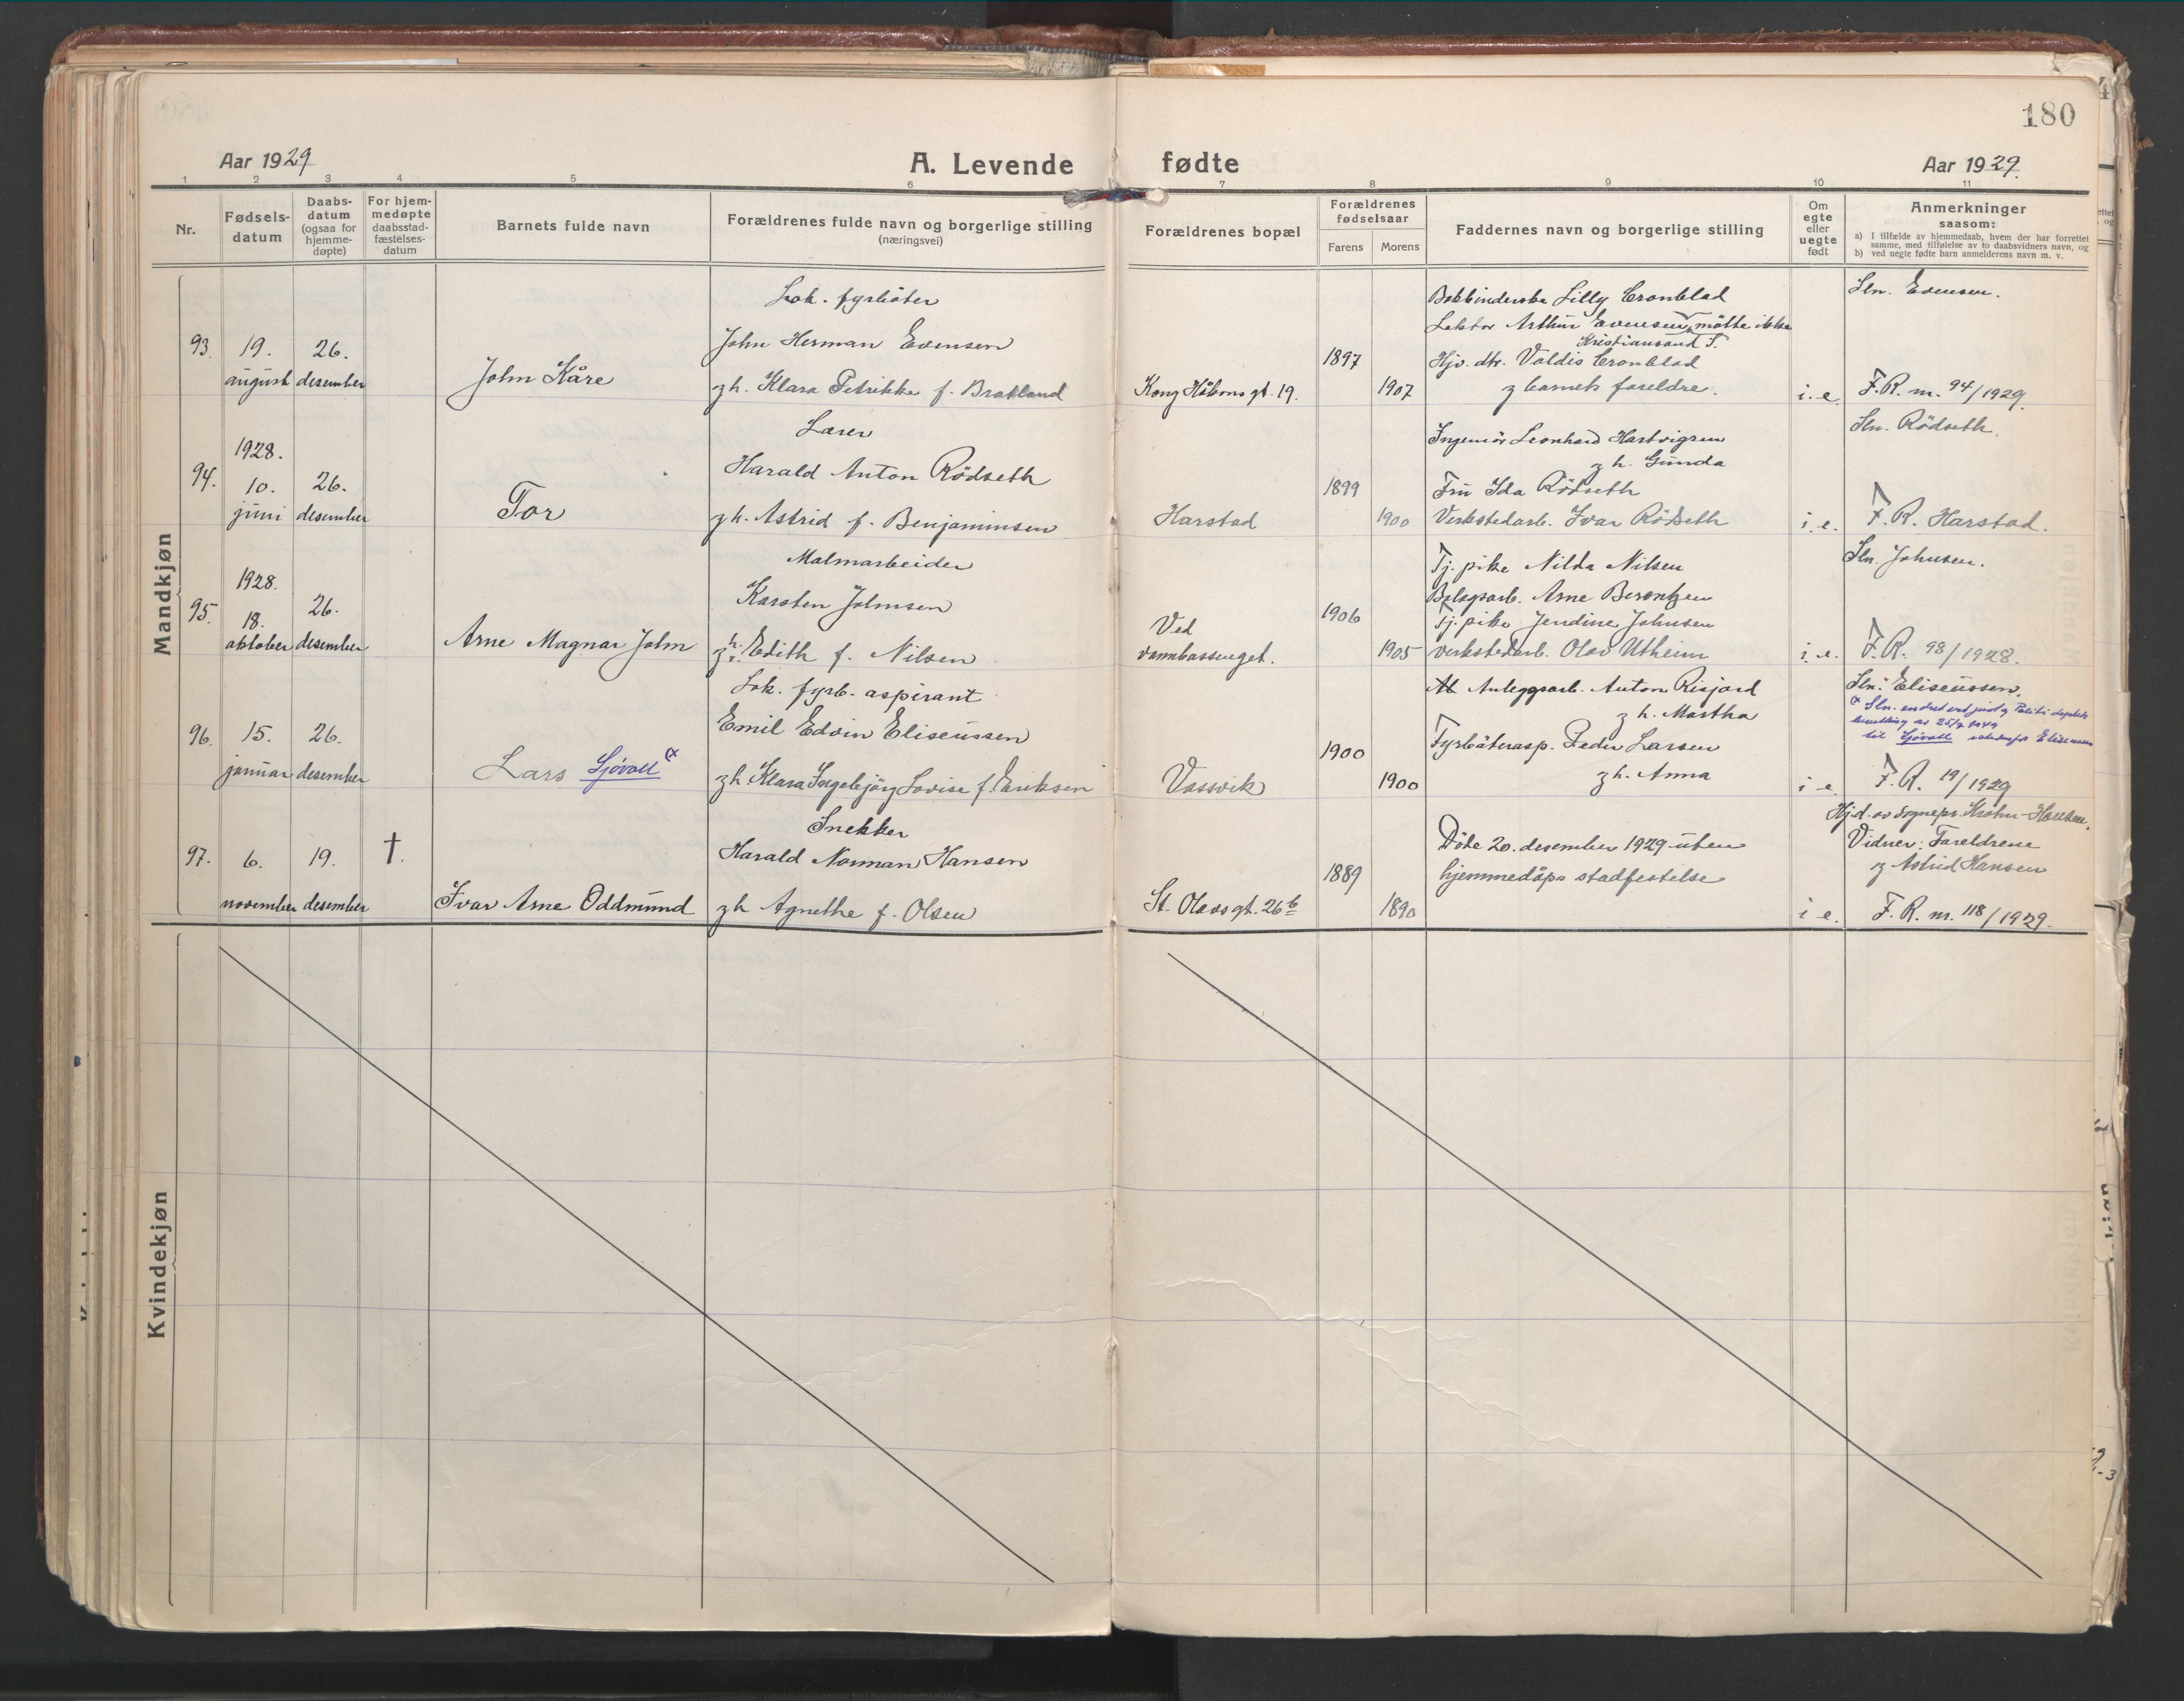 180
Aar 1929
A. Levende fødte
Aar 1929.
1 2 3 4 5 6 7 8 9 10 11
Nr.
Fødsels-
datum
Daabs-
datum
(ogsaa for
hjemme-
døpte)
For hjem-
medøpte
daabsstad-
fæstelses-
datum
Barnets fulde navn
Forældrenes fulde navn og borgerlige stilling
(næringsvei)
Forældrenes bopæl
Forældrenes
fødselsaar
Farens
Morens
Faddernes navn og borgerlige stilling
Om
egte
eller
uegte
født
Anmerkninger
saasom:
a) I tilfælde av hjemmedaab, hvem der har forrettet
samme, med tilføielse av to daabsvidners navn, og
b) ved uegte fødte barn anmelderens navn m. v.
Mandkjøn
93.
19.
august
26.
desember
John Kåre
Lok. fyrbøter
John Herman Evensen
g h. Klara Petrikke f. Bratland
Kong Håkons gt. 19.
1897
1907
Bokbinderske Lilly Cronblad
Lektor Arthur Evensen, møtte ikke
Kristiansand S.
Hjv. dtr. Valdis Cronblad
g barnets foreldre.
i. e.
Sln. Evensen.
F. R. nr. 94/1929.
94.
1928.
10.
juni
26.
desember
Tor
Lærer
Harald Anton Rödseth
g h. Astrid f. Benjaminsen
Harstad
1899
1900
Ingeniör Leonhard Hartvigsen
g h. Gunda
Fru Ida Rödseth
Verkstedarb. Ivar Rödseth
i. e.
Sln. Rödseth.
F. R. Harstad.
95.
1928.
18.
oktober
26.
desember
Arne Magnar John
Malmarbeider
Karsten Johnsen
g h. Edith f. Nilsen
Ved
vannbassenget.
1906
1905
Tj. pike Nilda Nilsen
Belagsarb. Arne Berentzen
Tj. pike Jendine Johnsen
verkstedarb. Olav Utheim
i. e.
Sln. Johnsen.
F. R. 98/1928.
96.
15.
januar
26.
desember
Lars Sjøvoll
Lok. fyrb. aspirant
Emil Edvin Eliseussen
g h Klara Ingebjörg Lovise f. Eriksen
Vassvik
1900
1900
Anleggsarb. Anton Risjord
g h. Martha
Fyrböterasp. Peder Larsen
g h. Anna
i e.
Sln. Eliseussen.
Sln. endret ved just. g Politi dep.tets
bevilling av 25/7 1949
til Sjøvoll istedenfor Eliseussen
F. R. 19/1929
97.
6.
november
19.
desember
†.
Ivar Arne Oddmund
Snekker
Harald Norman Hansen
g h Agnethe f. Olsen
St. Olavs gt. 26 b
1889
1890
Döde 20. desember 1929 uten
hjemmedåps stadfestelse
i e.
Hj.d. av sognepr. Krohn-Hansen.
Vidner: Foreldrene
g Astrid Hansen
F. R. nr. 118/1929.
Kvindekjøn